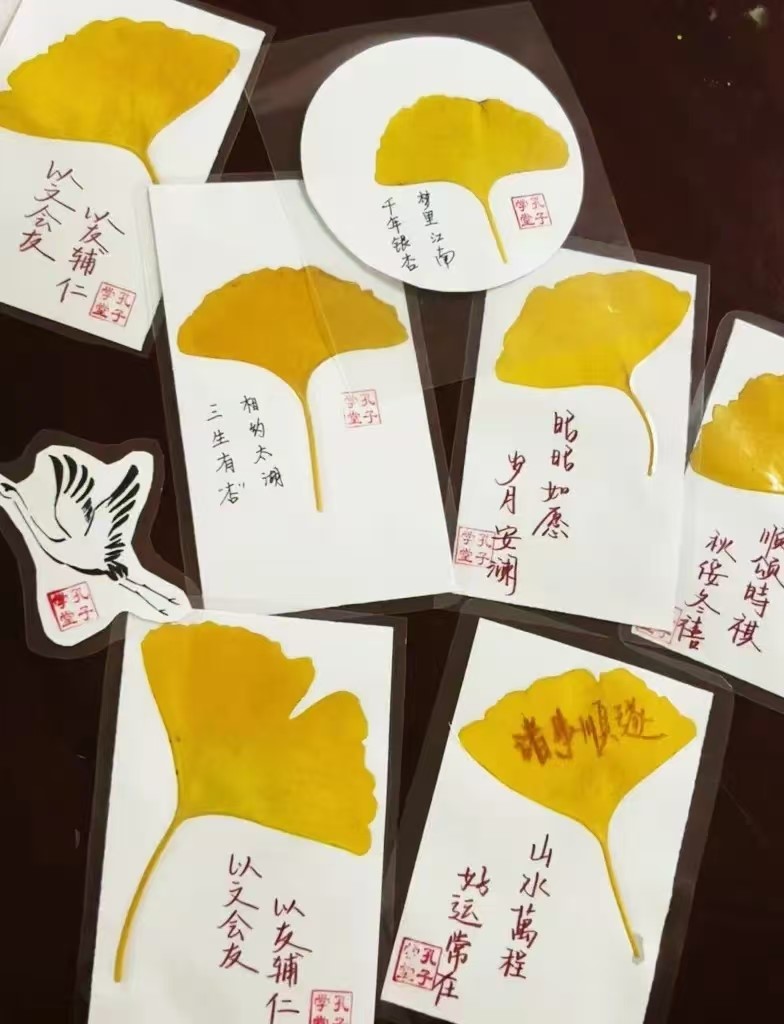 以文会友
以友辅仁
孔子学堂
梦里江南
千年银杏
孔子学堂
相约太湖
三生有“杏”
孔子学堂
昭昭如愿
岁月安澜
孔子学堂
顺颂時祺
秋绥冬禧
孔子学堂
以文会友
以友辅仁
孔子学堂
诸事順遂
山水萬程
好运常在
孔子学堂